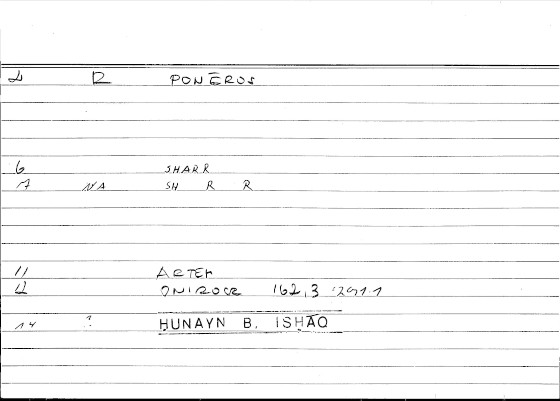 1 12 PONĒROS
6 SHARR
7 NA SH R R
11 ARTEM
12 ONIROCR 162,3
14 ? HUNAYN B. ISḤĀQ